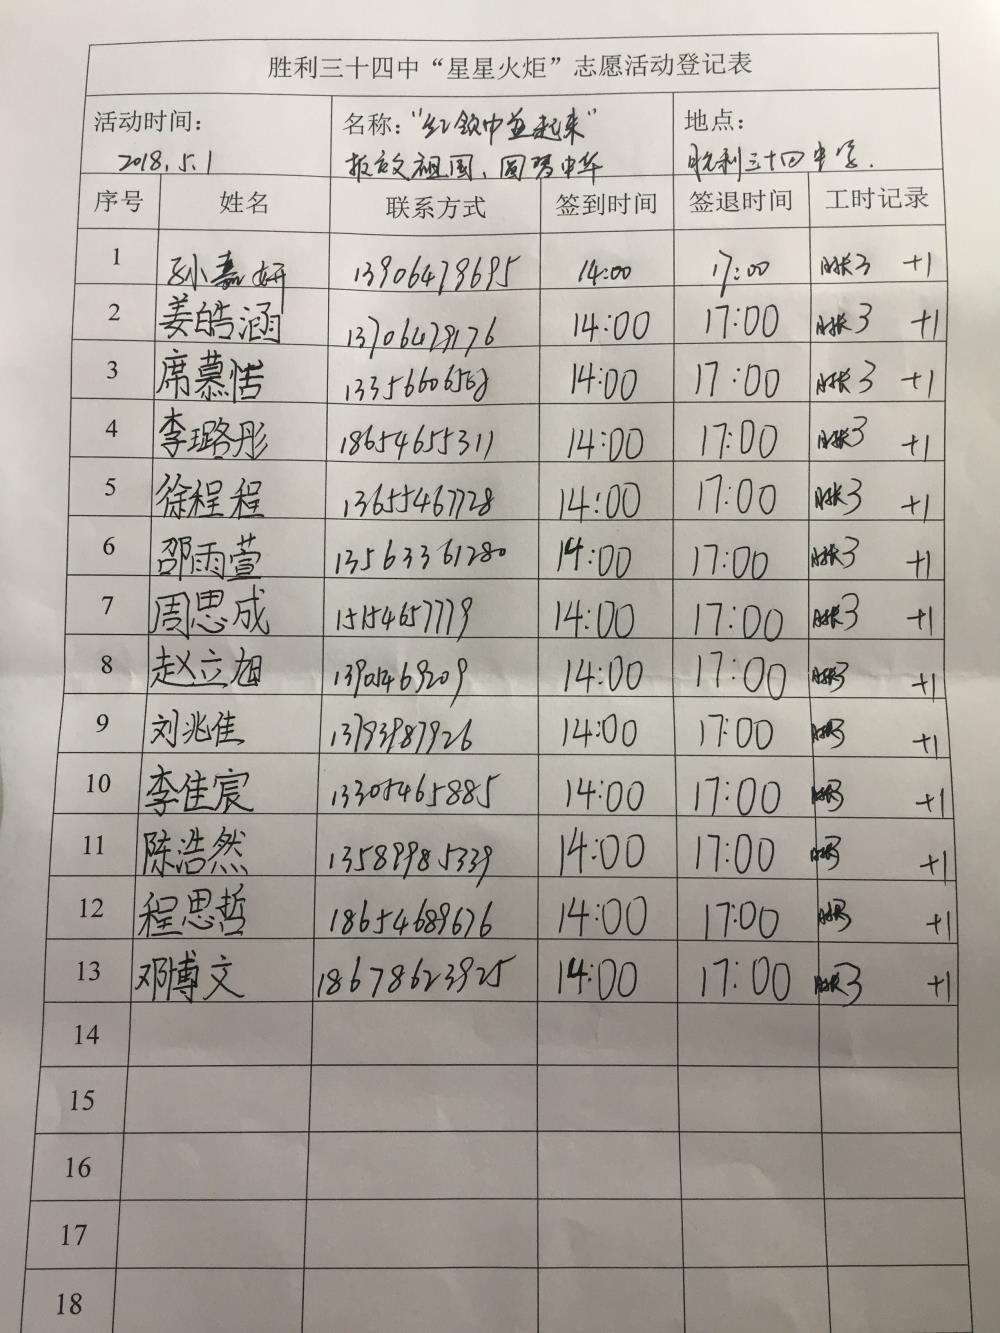 胜利三十四中“星星火炬”志愿活动登记表
活动时间： 名称：“红领巾 起来” 地点：
2018.5.1 报效祖国、圆梦中华 胜利三十四中学.
序号 姓名 联系方式 签到时间 签退时间 工时记录
1 孙嘉妍 13906479695 14:00 17:00 3 +1
2 姜皓涵 13706479176 14:00 17:00 3 +1
3 席慕恬 13356606568 14:00 17:00 3 +1
4 李璐彤 18654655311 14:00 17:00 3 +1
5 徐程程 13655467728 14:00 17:00 3 +1
6 邵雨萱 13563361280 14:00 17:00 3 +1
7 周思成 15154657779 14:00 17:00 3 +1
8 赵立旭 13905469209 14:00 17:00 3 +1
9 刘兆佳 13793987926 14:00 17:00 3 +1
10 李佳宸 13305465885 14:00 17:00 3 +1
11 陈浩然 13589985339 14:00 17:00 3 +1
12 程思哲 18654689676 14:00 17:00 3 +1
13 邓博文 18678623925 14:00 17:00 3 +1
14
15
16
17
18